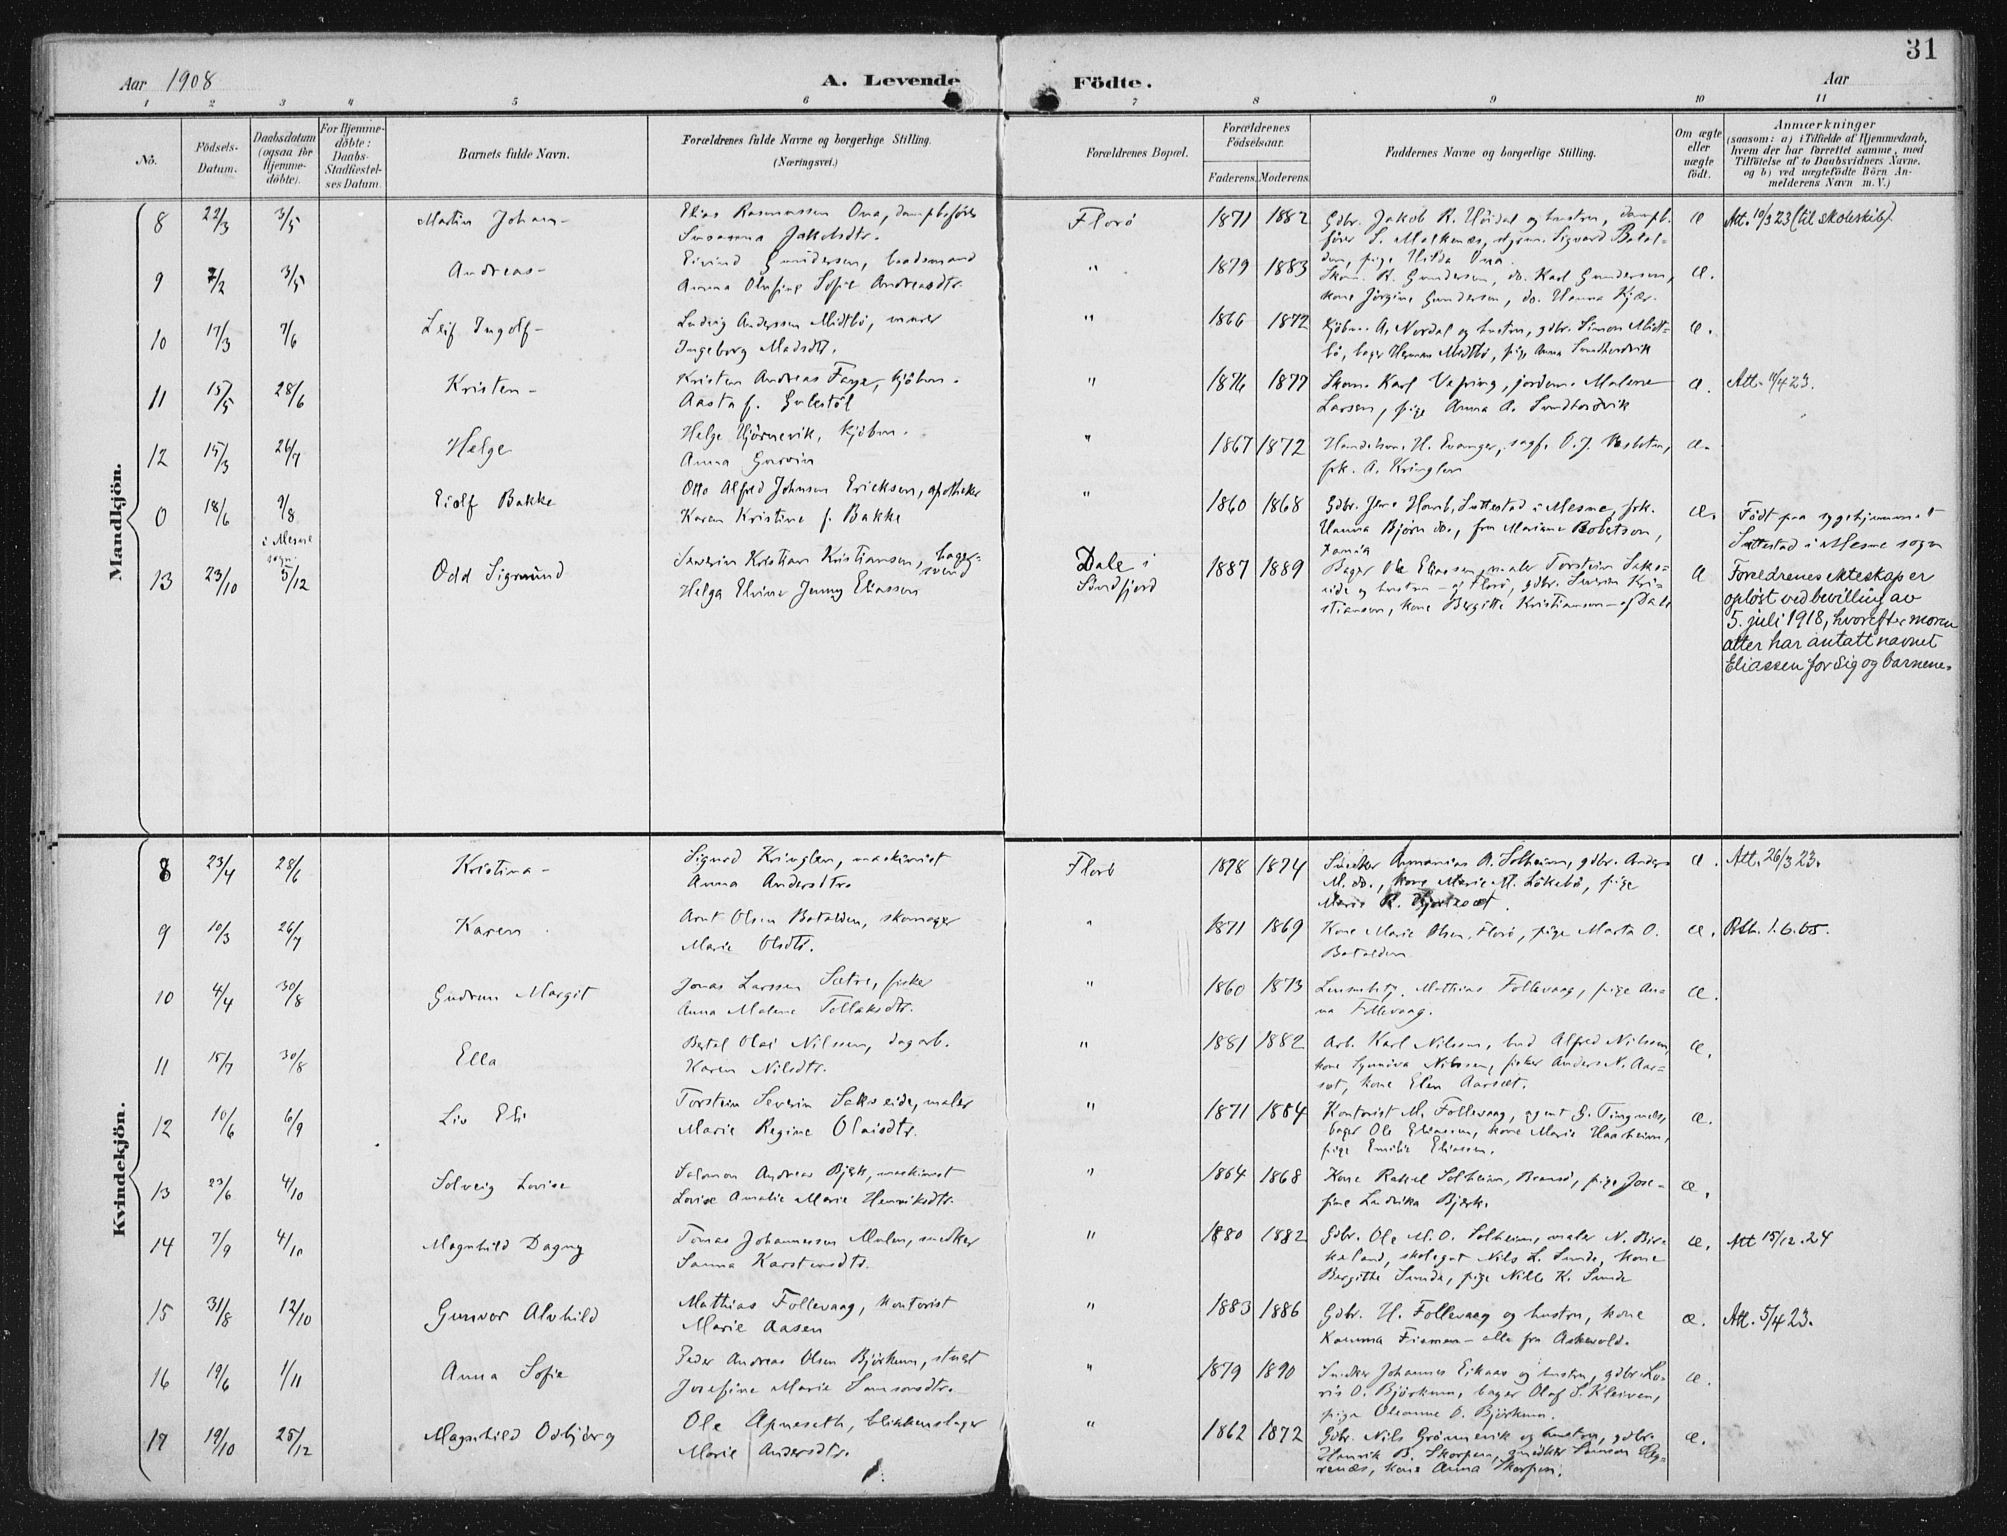 31
Aar 1908
A. Levende
Födte.
Aar
1 2 3 4 5 6 7 8 9 10 11
No.
Födsels-
Datum.
Daabsdatum
(ogsaa for
Hjemme-
döbte).
For Hjemme-
döbte:
Daabs-
Stadfæstel-
ses Datum
Barnets fulde Navn.
Forældrenes fulde Navne og borgerlige Stilling.
(Næringsvei.)
Forældrenes Bopæl.
Forældrenes
Födselsaar.
Faderens. Moderens.
Faddernes Navne og borgerlige Stilling.
Om ægte
eller
uægte
födt.
Anmærkninger
(saasom: a) i Tilfælde af Hjemmedaab,
hvem der har forrettet samme, med
Tilföielse af to Daabsvidners Navne.
og b) ved uægtefödte Börn An-
melderens Navn m. V.)
Mandkjön.
8 22/3 3/5 Martin Johan-
Elias Rasmussen Ona, dampbförer
Susanna Jakobsdtr.
Florö 1871 1882
Gdbr. Jakob R. Höidal og hustru, dampb.
förer S. Molknæs, styrm. Sigvard Batal-
den, pige Hilda Ona.
æ Att. 10/3 23 (til skoleskib).
9 7/2 3/5 Andreas-
Eivind Gundersen, baadsmand
Anna Olufine Sofie Andreasdtr.
" 1879 1883
Skom. R. Gundersen, do. Karl Gundersen,
kone Jörgine Gundersen, do. Hanna Kjær.
æ.
10 17/3 7/6 Leif Ingolf-
Ludvig Anderssen Midtbö, murer
Ingeborg Madsdtr.
" 1866 1872
Kjöbm. A. Nordal og hustru, gdbr. Simon Midt-
bö, bager Herman Midtbö, pige Anna Sundhordvik
æ.
11 15/5 28/6 Kristen-
Kristen Andreas Faye, kjöbm.
Aasta f. Gulestöl
" 1876 1877
Skom. Karl Vefring, jordem. Malene
Larsen, pige Anna A. Sundhordvik
æ. Att. 11/4 23.
12 15/3 26/7 Helge
Helge Hjörnevik, kjöbm.
Anna
" 1867 1872
H. Evanger, sagf. O. J.
frk. A. Kringlen
æ.
0 18/6 9/8 Eiolf Bakke
i Mesne
sogn
Otto Alfred Johnsen Ericksen, apotheker
Karen Kristine f. Bakke
" 1860 1868
Gdbr. Jens Suttestad i Mesne, frk.
Hanna Björn do., fru Mariane Robertson,
æ. Födt paa sygehjemmet
Suttestad i Mesne sogn
13 23/10 5/12 Odd Sigmund
Severin Kristian Kristiansen, bager-
svend
Helga Elvine Jenny Eliassen
Dale i
Söndfjord
1887 1889
Bager Ole Eliassen, maler Torstein Saks-
eide og hustru - af Florö, gdbr. Severin Kri-
stiansen, kone Bergitte Kristiansen - af Dale
Æ Foreldrenes ekteskap er
oplöst ved bevilling av
5. juli 1918, hvorefter moren
atter har antatt navnet
Eliassen for sig og barnene.
Kvindekjön.
8 23/4 28/6 Kristina-
Sigurd Kringlen, maskinist
Anna Andersdtr.
Florö 1878 1874
Snedker Ananias A. Solheim, gdbr. Anders
M. do., kone Marie M. Lökebö, pige
Marie R.
æ. Att. 26/3 23.
9 10/3 26/7 Karen
Arnt Olsen Batalden, skomager
Marie Olsdtr.
" 1871 1869
Kone Marie Olsen, Florö, pige Marta O.
Batalden
æ. 1.6.65.
10 4/4 30/8 Gudrun Margit
Jonas Larssen Sætre, fisker
Anna Malene Tollaksdtr.
" 1860 1873
Mathias Follevaag, pige An-
na Follevaag.
æ.
11 15/7 30/8 Ella
Bertel Olai Nilssen, dagarb.
Karen Nilsdtr.
" 1881 1882
Arb. Karl Nilssen, bud Alfred Nilssen,
kone Gunniva Nilssen, fisker Anders N. Aar-
set, kone Elen Aarset.
æ.
12 10/6 6/9 Liv Eli
Torstein Severin Sakseide, maler
Marie Regine Olaisdtr.
" 1871 1884
Kontorist M. Follevaag, agent G. Tingnæs,
bager Ole Eliassen, kone Marie Haarheim,
pige Emilie Eliassen.
æ.
13 23/6 4/10 Solveig Lovise
Salomon Andreas Björk, maskinist
Lovise Amalie Marie Henriksdtr.
" 1864 1868
Kone Rakel Solheim, Bransö, pige Jose-
fine Ludvika Björk.
æ.
14 7/9 4/10 Magnhild Dagny
Tomas Johannessen Mulen, snedker
Sanna Karstensdtr.
" 1880 1882
Gdbr. Ole M. O. Solheim, maler N. Bir-
keland, skolegut Nils L. Sunde, kone
Bergithe Sunde, pige Nille K. Sunde
æ. Att 15/12.24
15 31/8 12/10 Gunvor Alvhild
Mathias Follevaag, kontorist
Marie Aasen
" 1883 1886
Gdbr. H. Follevaag og hustru, kone
Kamma - alle fra Askevold.
æ. Att. 5/4 23.
16 19/6 1/11 Anna Sofie
Peder Andreas Olsen Björkum, stuert
Josefine Marie Samsonsdtr.
" 1879 1890
Snedker Johannes Eikaas og hustru, gdbr. La-
ris O. Björkum, bager Olaf S. Kleiven,
pige Oleanne O. Björkum.
æ.
17 19/10 25/12 Magnhild Odbjörg
Ole Apneseth, blikkenslager
Marie Andersdtr.
" 1862 1872
Gdbr. Nils Grönnevik og hustru, gdbr.
Henrik B. Skorpen, snedker Samson
kone Anna Skorpen.
æ.